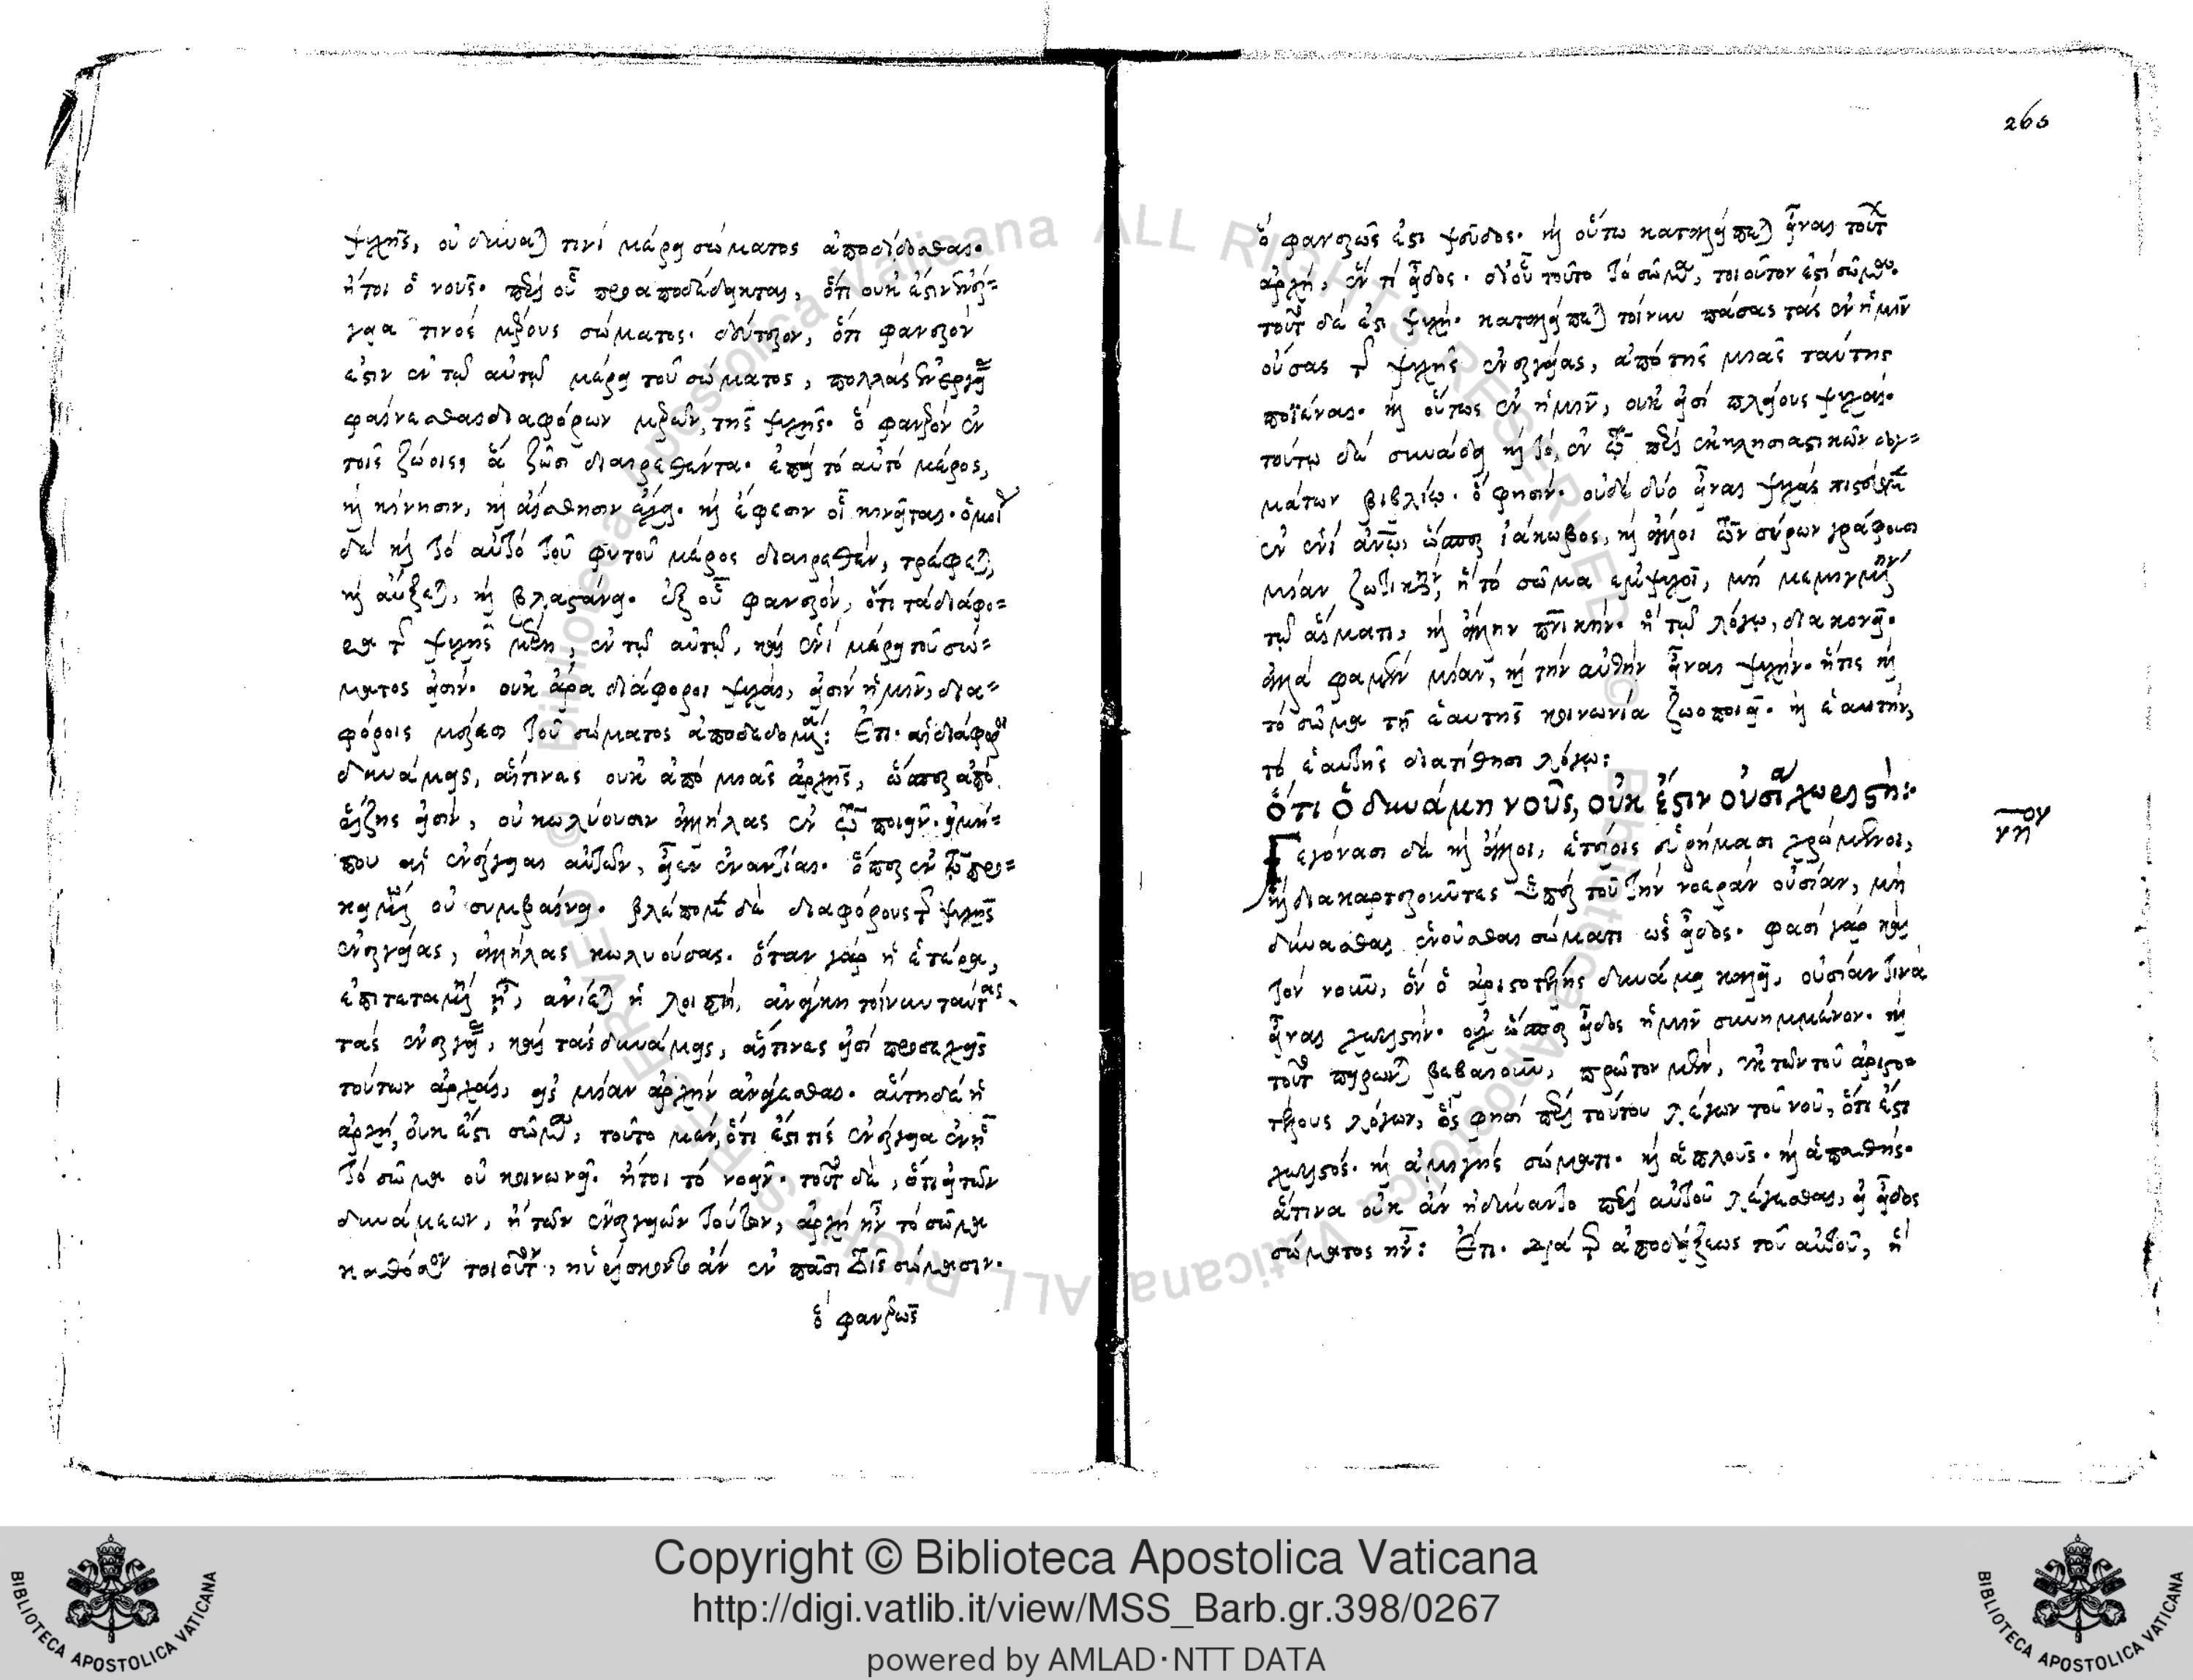 ψυχῆς, οὐ δύναται τινὶ μέρει σώματος ἀποδίδοσθαι.
ἤτοι ὁ νοῦς. περὶ οὗ προαποδέδεικται, ὅτι οὐκ ἔστιν ἐνέρ=
γεια τινὸς μέρους σώματος. δεύτερον, ὅτι φανερὸν
ἐστιν ἐν τῷ αὐτῷ μέρει τοῦ σώματος, πολλὰς ἐνεργείας
φαίνεσθαι διαφόρων μερῶν, τῆς ψυχῆς. ὃ φανερὸν ἐν
τοῖς ζώοις, ἃ ζῶσι διαιρεθέντα. ἐπεὶ τὸ αὐτὸ μέρος,
καὶ κίνησιν, καὶ αἴσθησιν ἔχει. καὶ ἔφεσιν ᾗ κινεῖται. ὁμοίως
δὲ καὶ τὸ αὐτὸ τοῦ φυτοῦ μέρος διαιρεθὲν, τρέφεται,
καὶ αὔξεται, καὶ βλαστάνει. ἐξ οὗ φανερὸν, ὅτι τὰ διάφο=
ρα τῆς ψυχῆς μέρη, ἐν τῷ αὐτῷ, καὶ ἑνὶ μέρει τοῦ σώ=
ματος εἰσίν. οὐκ ἄρα διάφοροι ψυχαὶ, εἰσὶν ἡμῖν, δια=
φόροις μέρεσι τοῦ σώματος ἀποδεδομέναι: Ἔτι. αἱ διάφοροι
δυνάμεις, αἵτινες οὐκ ἀπὸ μιᾶς ἀρχῆς, ὥσπερ ἀπὸ
ῥίζης εἰσὶν, οὐ κωλύουσιν ἀλλήλας ἐν τῷ ποιεῖν. εἰ μή=
που αἱ ἐνέργειαι αὐτῶν, εἶεν ἐναντίαι. ὅπερ ἐν τῷ προ=
κειμένῳ οὐ συμβαίνει. βλέπομεν δὲ διαφόρους τῆς ψυχῆς
ἐνεργείας, ἀλλήλας κωλυούσας. ὅταν γὰρ ἡ ἑτέρα,
ἐπιτεταμένη ᾖ, ἀνίεται ἡ λοιπὴ, ἀνάγκη τοίνυν ταύτας
τὰς ἐνεργείας, καὶ τὰς δυνάμεις, αἵτινες εἰσὶ προσεχεῖς
τούτων ἀρχαὶ, εἰς μίαν ἀρχὴν ἀνάγεσθαι. αὕτη δὲ ἡ
ἀρχὴ, οὐκ ἔστι σῶμα, τοῦτο μὲν, ὅτι ἔστι τὶς ἐνέργεια ἐν ᾗ
τὸ σῶμα οὐ κοινωνεῖ. ἤτοι τὸ νοεῖν. τοῦτο δὲ, ὅτι εἰ τῶν
δυνάμεων, ἢ τῶν ἐνεργειῶν τούτων, ἀρχὴ ἦν τὸ σῶμα
καθόσον τοιοῦτον, ηὑρίσκοντο ἂν ἐν πᾶσι τοῖς σώμασιν.
ὃ φανερῶς
265
ὃ φανερῶς ἐστι ψεῦδος. καὶ οὕτω καταλείπεται εἶναι τούτων
ἀρχὴ, ἕν τι εἶδος. δι' οὗ τοῦτο τὸ σῶμα, τοιοῦτον ἐστὶ σῶμα.
τοῦτο δὲ ἐστι ψυχή. καταλείπεται τοίνυν πάσας τὰς ἐν ἡμῖν
οὔσας τῆς ψυχῆς ἐνεργείας, ἀπὸ τῆς μιᾶς ταύτης
προϊέναι. καὶ οὕτως ἐν ἡμῖν, οὐκ εἰσὶ πλείους ψυχαί.
τούτῳ δὲ συνάδει καὶ τὸ, ἐν τῷ περὶ ἐκκλησιαστικῶν δογ=
μάτων βιβλίῳ. ὃ φησίν. οὐδὲ δύο εἶναι ψυχὰς πιστεύομεν
ἐν ἑνὶ ἀνθρώπῳ, ὥσπερ ἰάκωβος, καὶ ἄλλοι τῶν σύρων γράφουσι
μίαν ζωτικὴν, ᾗ τὸ σῶμα ἐμψυχοῖ, μὴ μεμιγμένην
τῷ αἵματι, καὶ ἄλλην πνευματικήν. ἢ τῷ λόγῳ, διακονεῖ.
ἀλλὰ φαμὲν μίαν, καὶ τὴν αὐτὴν εἶναι ψυχήν. ἥτις καὶ
τὸ σῶμα τῇ ἑαυτῆς κοινωνία ζωοποιεῖ. καὶ ἑαυτὴν,
τὸ ἑαυτῆς διατίθησι λόγῳ:
ὅτι ὁ δυνάμει νοῦς, οὐκ ἔστιν οὐσία χωριστή:
Γεγόνασι δὲ καὶ ἄλλοι, ἑτέροις εὑρήμασι χρώμενοι,
καὶ διακαρτεροῦντες ὑπὲρ τοῦ τὴν νοερὰν οὐσίαν, μὴ
δύνασθαι ἑνοῦσθαι σώματι ὡς εἶδος. φασὶ γὰρ καὶ
τὸν νοῦν, ὃν ὁ ἀριστοτέλης δυνάμει καλεῖ, οὐσίαν τινὰ
εἶναι χωριστήν. οὐχ ὥσπερ εἶδος ἡμῖν συνημμένον. καὶ
τοῦτο πειρῶνται βεβαιοῦν, πρῶτον μὲν, ἐκ τῶν τοῦ ἀριστο=
τέλους λόγων, ὅς φησι περὶ τούτου λέγων τοῦ νοῦ, ὅτι ἐστὶ
χωριστός. καὶ ἀμιγὴς σώματι. καὶ ἁπλοῦς. καὶ ἀπαθής.
ἅτινα οὐκ ἂν ἠδύναντο περὶ αὐτοῦ λέγεσθαι, εἰ εἶδος
σώματος ἦν: Ἔτι. διὰ τῆς ἀποδείξεως τοῦ αὐτοῦ, ᾗ
Copyright © Biblioteca Apostolica Vaticana
http://digi.vatlib.it/view/MSS_Barb.gr.398/0267
powered by AMLAD·NTT DATA
BIBLIOTECA APOSTOLICA VATICANA
BIBLIOTECA APOSTOLICA VATICANA